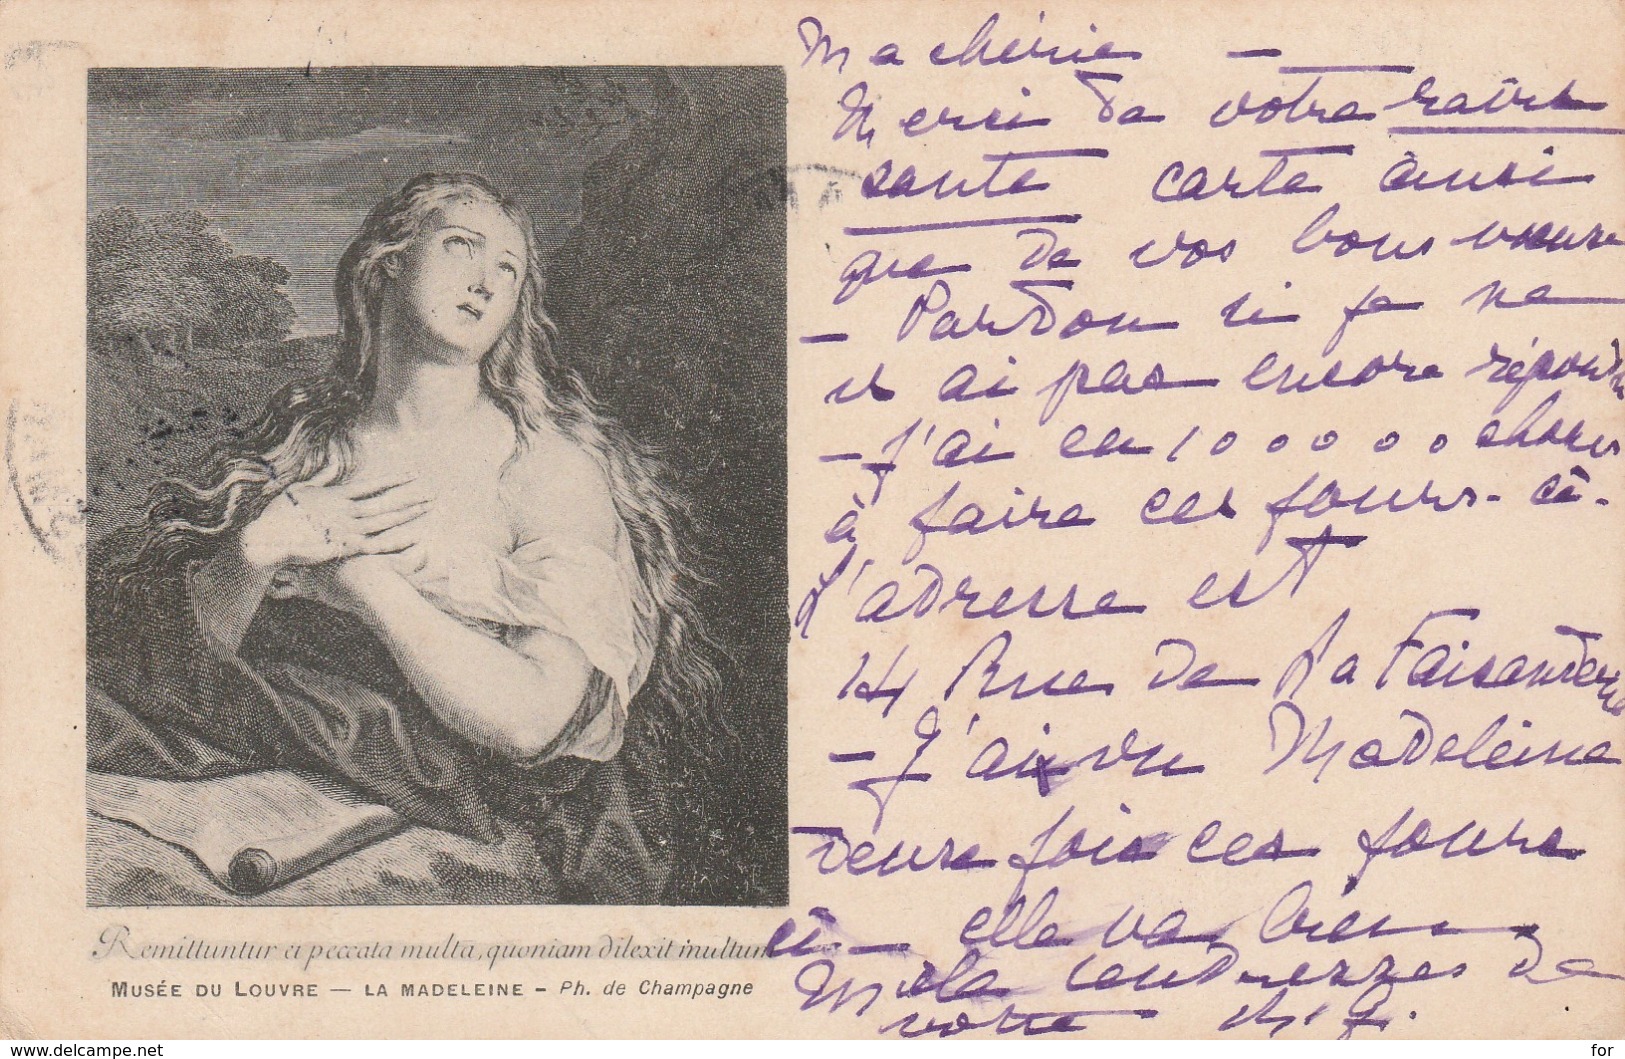 Ma chérie —
Merci de votre ravis
sante carte ainsi
que de vos bons vœux
— Pardon si je ne
v ai pas encore répondu
— J'ai eu 100000 choses
à faire ces jours-ci.
L'adresse est
14 Rue de La Faisanderie
— J'ai vu Madeleine
deux fois ces jours
ci — elle va bien
Mille tendresses de
votre
Remittuntur ei peccata multa, quoniam dilexit multum
MUSÉE DU LOUVRE — LA MADELEINE - Ph. de Champagne
© delcampe.net
for